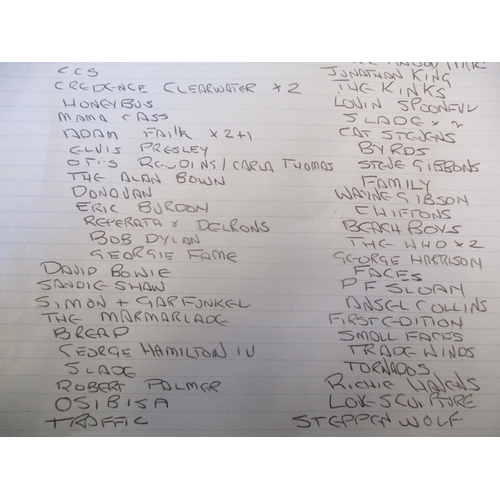 CCS
CREDENCE CLEARWATER x 2
HONEYBUS
MAMA CASS
ADAM FAITH x 2+1
ELVIS PRESLEY
OTIS REDDING / CARLA THOMAS
THE ALAN BOWN
DONOVAN
ERIC BURDON
REPERATA & DELRONS
BOB DYLAN
GEORGIE FAME
DAVID BOWIE
SANDIE SHAW
SIMON + GARFUNKEL
THE MARMARLADE
BREAD
GEORGE HAMILTON IV
SLADE
ROBERT PALMER
OSIBISA
TRAFFIC
JONATHAN KING
THE KINKS
LOVIN SPOONFUL
SLADE x 2
CAT STEVENS
BYRDS
STEVE GIBBONS
FAMILY
WAYNE GIBSON
CHIFFONS
BEACH BOYS
THE WHO x 2
GEORGE HARRISON
FACES
P F SLOAN
ANSEL COLLINS
FIRST EDITION
SMALL FACES
TRADE WINDS
TORNADOS
RICHIE HAVENS
LOVE SCULPTURE
STEPPEN WOLF